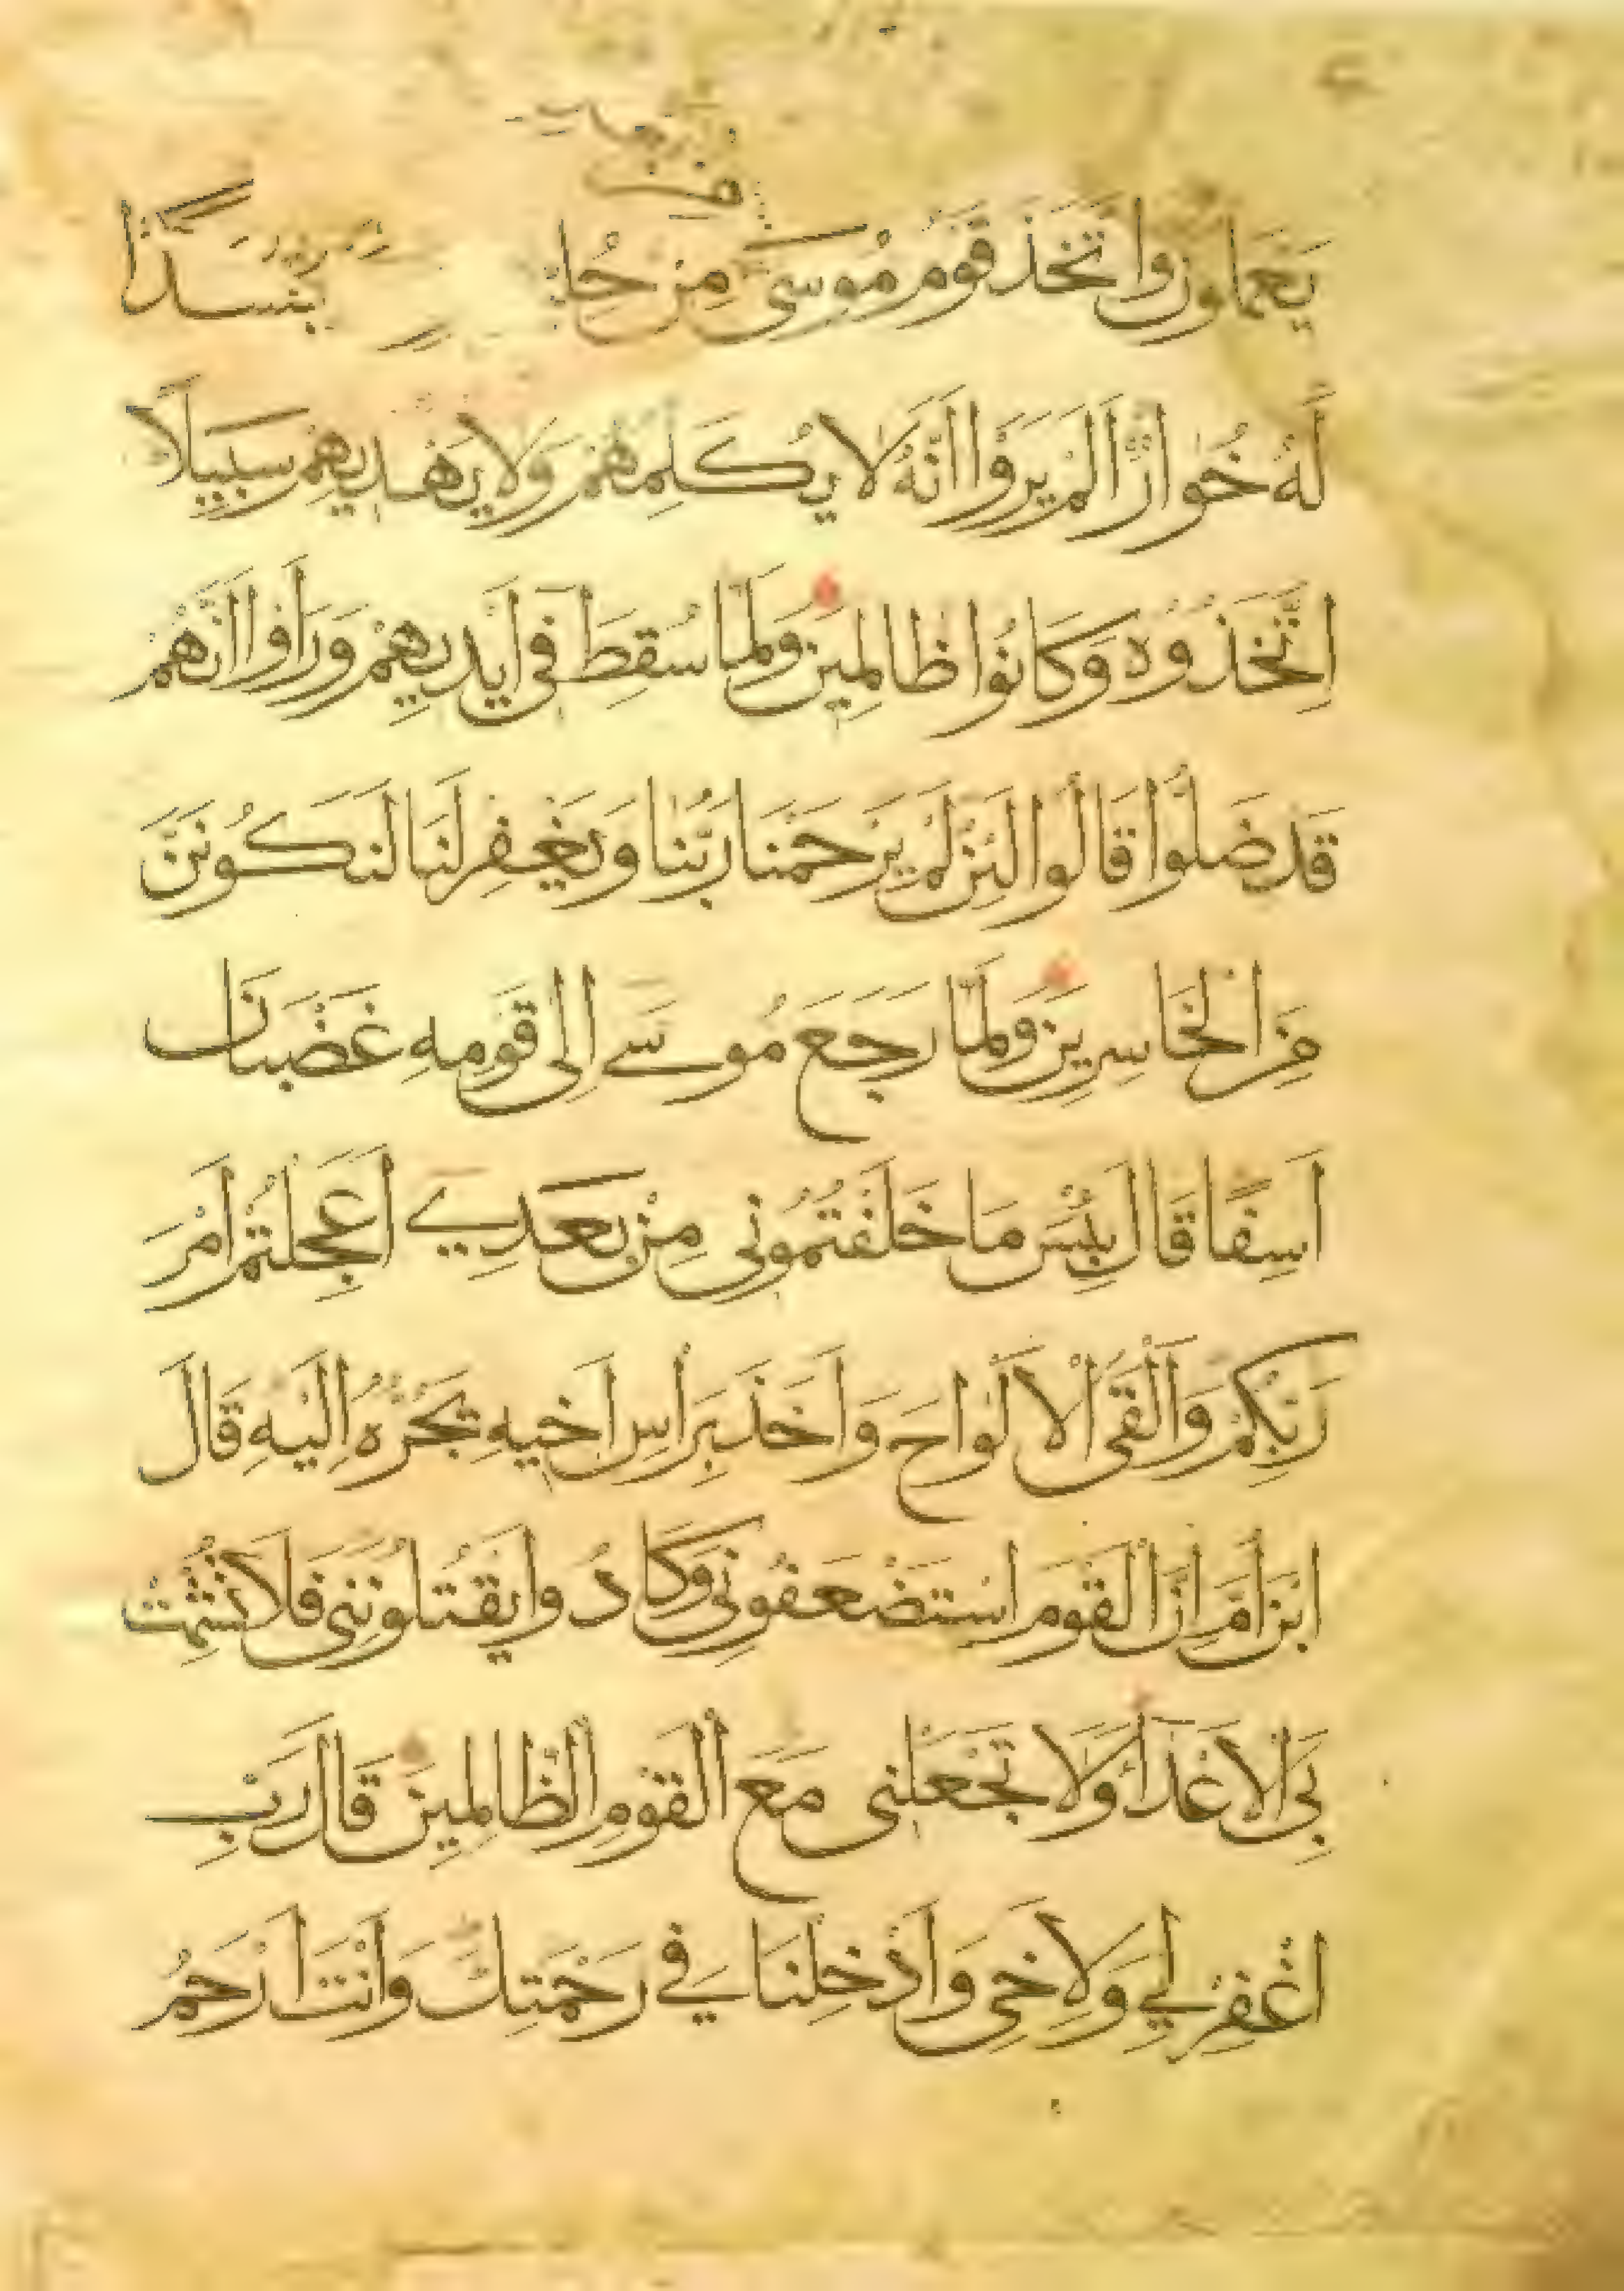 يَعْمَلُونَ وَاتَّخَذَ قَوْمُ مُوسَى مِنْ حُلِ جَسَدًا
لَهُ خُوَارٌ أَلَمْ يَرَوْا أَنَّهُ لَا يُكَلِّمُهُمْ وَلَا يَهْدِيهِمْ سَبِيلًا
اِتَّخَذُوهُ وَكَانُوا ظَالِمِينَ وَلَمَّا سُقِطَ فِي أَيْدِيهِمْ وَرَأَوْا أَنَّهُمْ
قَدْ ضَلُّوا قَالُوا لَئِنْ لَمْ يَرْحَمْنَا رَبُّنَا وَيَغْفِرْ لَنَا لَنَكُونَنَّ
مِنَ الْخَاسِرِينَ وَلَمَّا رَجَعَ مُوسَى إِلَى قَوْمِهِ غَضْبَانَ
أَسِفًا قَالَ بِئْسَ مَا خَلَفْتُمُونِي مِنْ بَعْدِي أَعَجِلْتُمْ أَمْرَ
رَبِّكُمْ وَأَلْقَى الْأَلْوَاحَ وَأَخَذَ بِرَأْسِ أَخِيهِ يَجُرُّهُ إِلَيْهِ قَالَ
ابْنَ أُمَّ إِنَّ الْقَوْمَ اسْتَضْعَفُونِي وَكَادُوا يَقْتُلُونَنِي فَلَا تُشْمِتْ
بِيَ الْأَعْدَاءَ وَلَا تَجْعَلْنِي مَعَ الْقَوْمِ الظَّالِمِينَ قَالَ رَبِّ
اغْفِرْ لِي وَلِأَخِي وَأَدْخِلْنَا فِي رَحْمَتِكَ وَأَنْتَ أَرْحَمُ